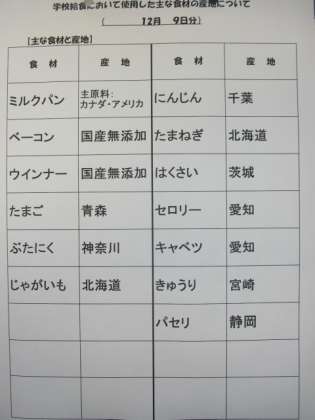 学校給食において使用した主な食材の産地について
( 12月 9日分)
【主な食材と産地】
食材 産地 食材 産地
ミルクパン 主原料:カナダ・アメリカ にんじん 千葉
ベーコン 国産無添加 たまねぎ 北海道
ウインナー 国産無添加 はくさい 茨城
たまご 青森 セロリー 愛知
ぶたにく 神奈川 キャベツ 愛知
じゃがいも 北海道 きゅうり 宮崎
パセリ 静岡